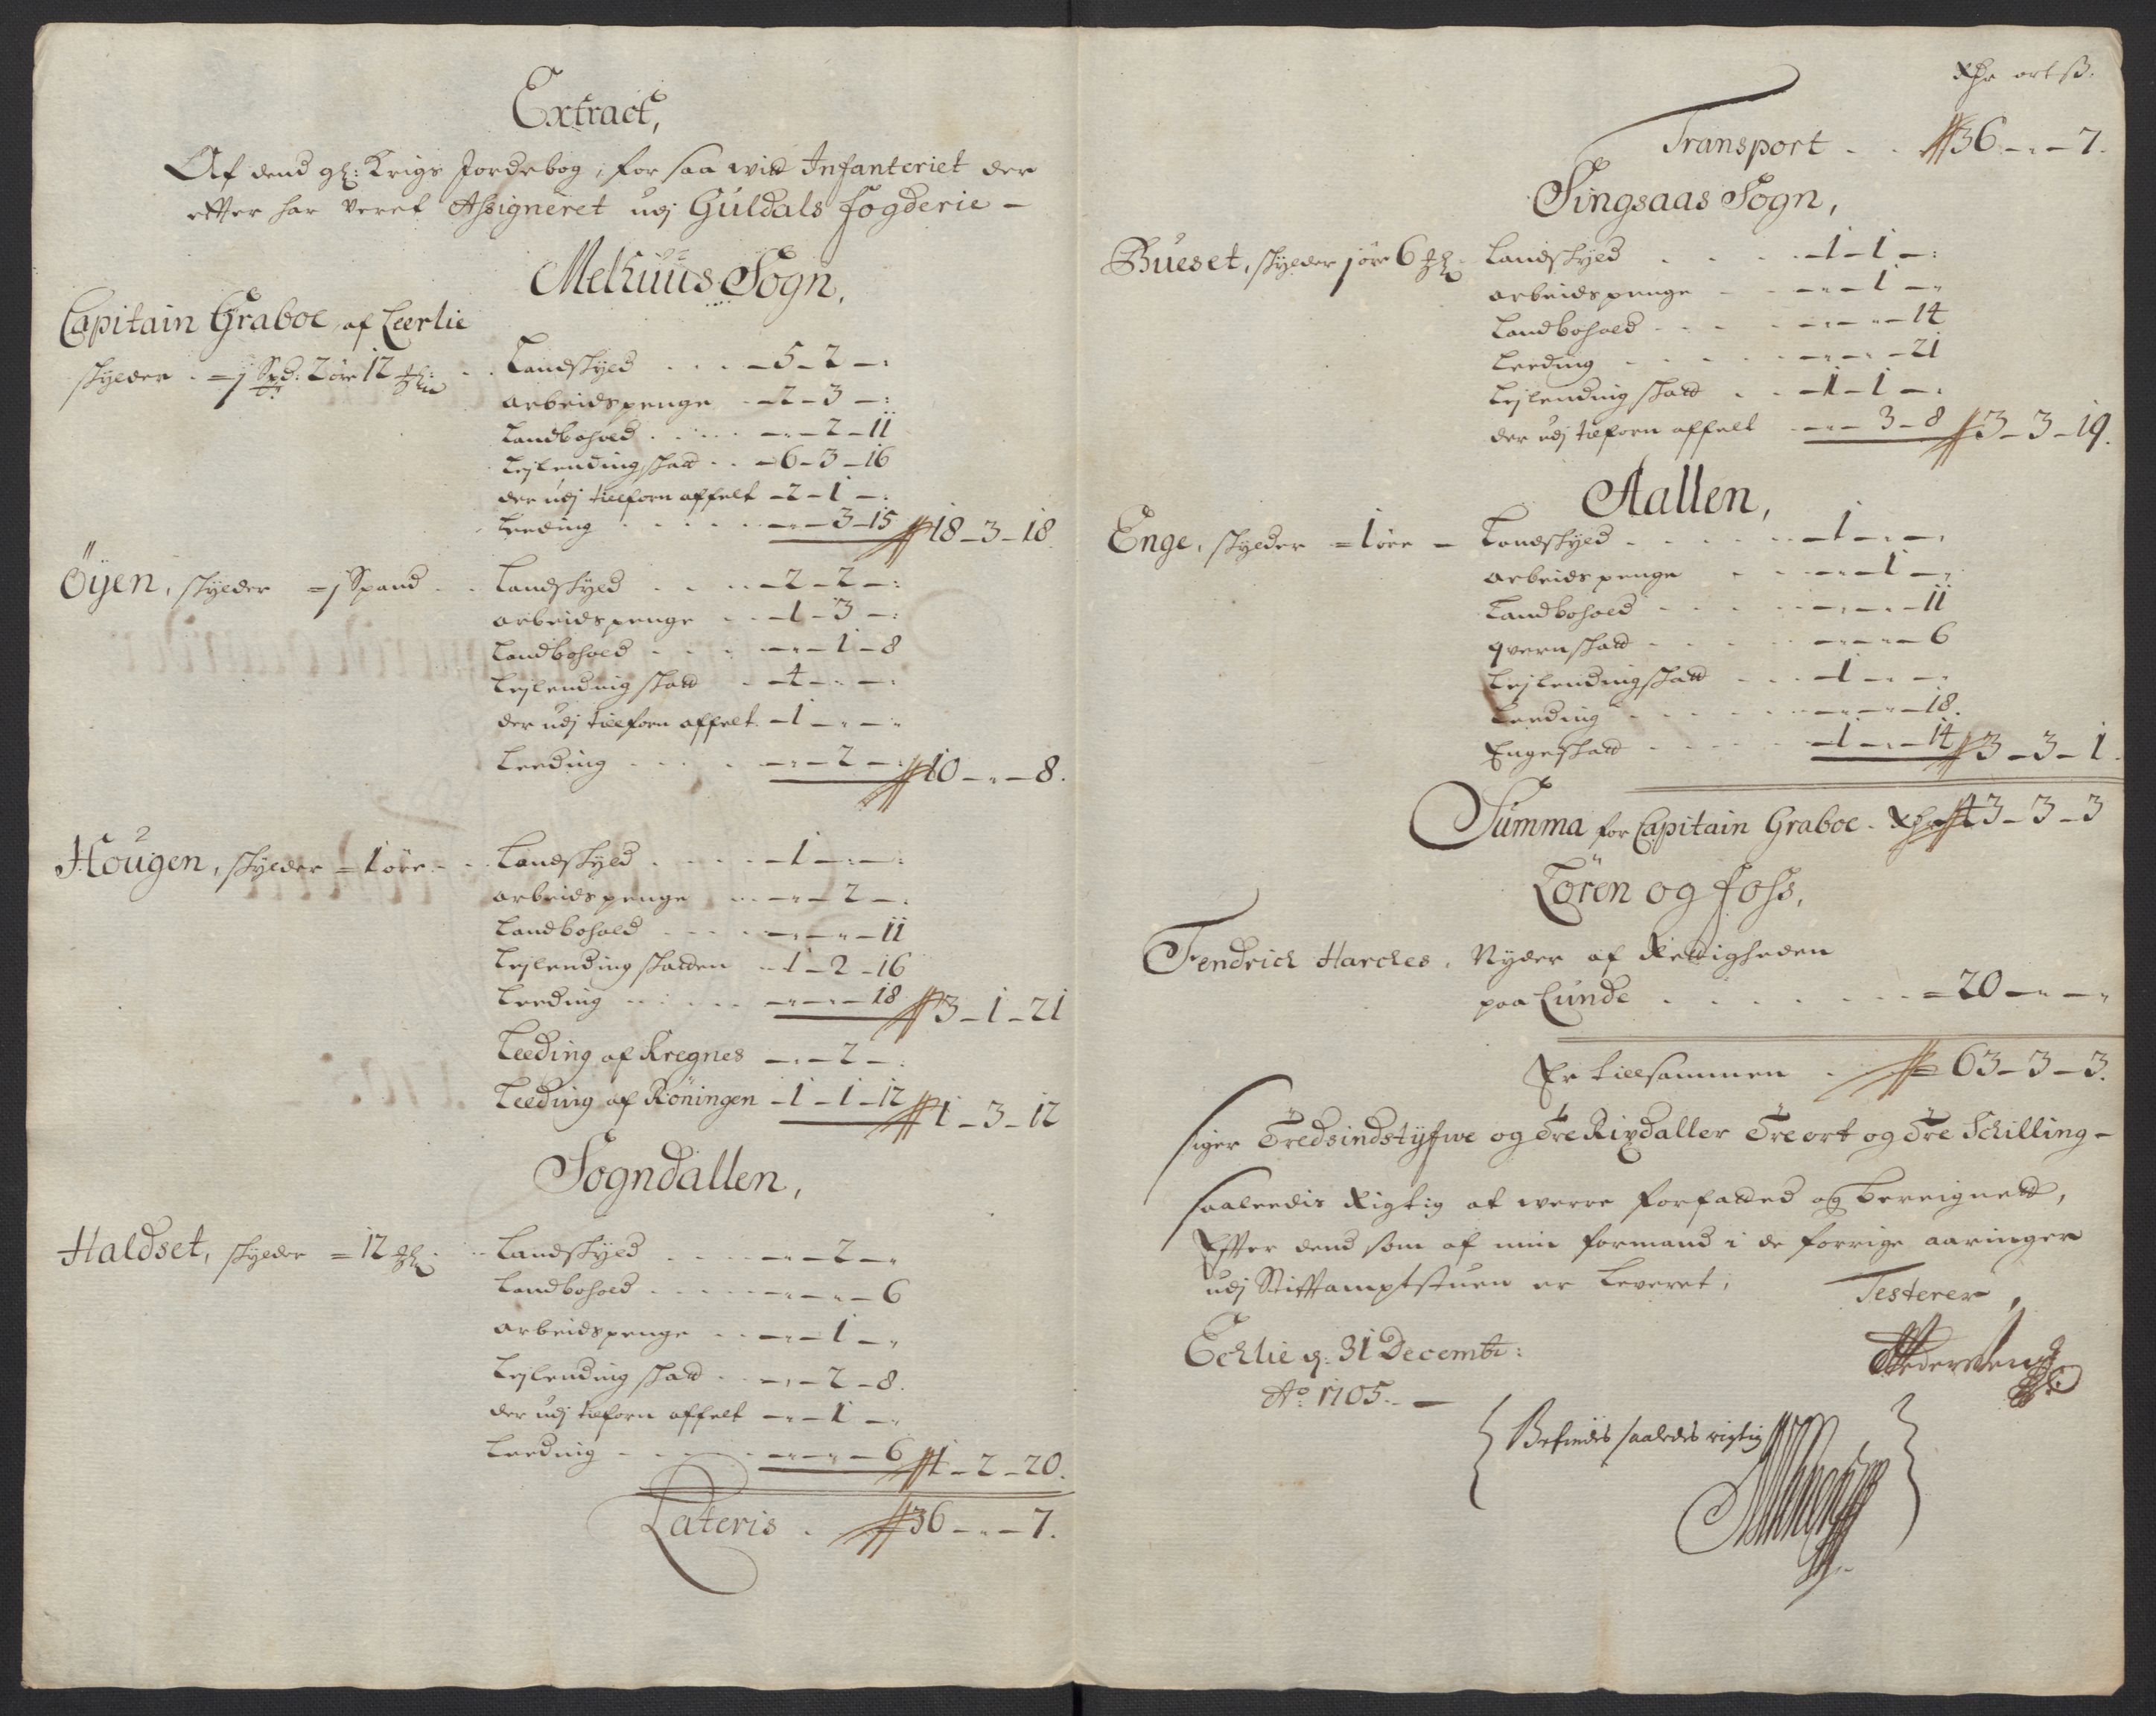 Extract,
Af dend gl: Krigs Jordebog, for saa witt Infanteriet der
effter har veret Assigneret udj Guldals fogderie –
Melhuus Sogn,
Capitain Graboe, af Leerlie
skylder – 1 Spd: 2 øre 12 mkl: . . Landskyld . . . – 5 – 2 – :
arbeidspenge – 2 – 3 – :
Landbohold . . . . – „ – 2 – 11
Lejlending skatt . . – 6 – 3 – 16
der udj tilforn affelt – 2 – 1 – :
Leeding . . . . . – „ – 3 – 15 # 18 – 3 – 18.
Öyen, skylder – 1 Spand . . Landskyld . . . – 2 – 2 – :
arbeidspenge . . – 1 – 3 – :
Landbohold . . . – „ – 1 – 8
Lejlending skatt . – 4 – „ – :
der udj tillforn affelt . – 1 – „ – „
Leeding . . . . – „ – 2 – : # 10 – „ – 8.
Hougen, skylder – 1 øre – . . Landskyld . . . . – 1 – „ – :
arbeidspenge . . – „ – 2 – .
Landbohold . . . . – „ – „ – 11
Lejlending skatten . . – 1 – 2 – 16
Leeding . . . . . – „ – „ – 18 # 3 – 1 – 21
Leeding af Kregnes – „ – 2 – :
Leeding af Röningen – 1 – 1 – 12 # 1 – 3 – 12
Sogndallen,
Haldset, skylder = 12 mkl . . . Landskyld . . . . – „ – 2 – „
Landbohold . . . . – „ – „ – 6
arbeidspenge . . – „ – 1 – „
Lejlending skatt . . – „ – 2 – 8.
der udj tilforn affelt – „ – 1 – „
Leeding . . . . – „ – „ – 6 # 1 – 2 – 20.
Lateris . # 36 – „ – 7.
Rdr ort ß.
Transport . . # 36 – „ – 7.
Singsaas Sogn,
Bueset, skylder 1 øre 6 mkl – Landskyld . . . . – 1 – 1 – :
arbeidspenge – . – „ – 1 – „
Landbohold . . . . – „ – „ – 14
Leeding . . . . . – „ – „ – 21
Lejlending skatt . . – 1 – 1 – .
der udj tilforn affelt – „ – 3 – 8 # 3 – 3 – 19.
Aallen,
Enge, skylder – 1 øre – Landskyld . . . . . – 1 – „ – .
arbeidspenge . . . – „ – 1 – „
Landbohold . . . . – „ – „ – 11
qvernskatt . . . . – „ – „ – 6
Lejlendingskatt . . . – 1 – „ – „
Leeding . . . . . – „ – „ – 18.
Engeskatt . . . . – 1 – „ – 14 # 3 – 3 – 1.
Summa for Capitain Graboe . Rdr # 43 – 3 – 3
Tören og foss,
Fendrich Harches, Nyder af Rettigheden
paa Lunde . . . . . . . = 20 – „ – „
Er tillsammen . . # = 63 – 3 – 3.
siger Tredsindstyfwe og Tre Rixdaller Tre ort og Tre Schilling –
saaledis Rigtig at werre forfatted og bereignett,
Effter dend som af min formand i de forrige aaringer
udj Stifftamptstuen er Leveret, Testerer,
Echlie d: 31 Decembr:
Ao 1705. –
Befindis saaledis rigtig